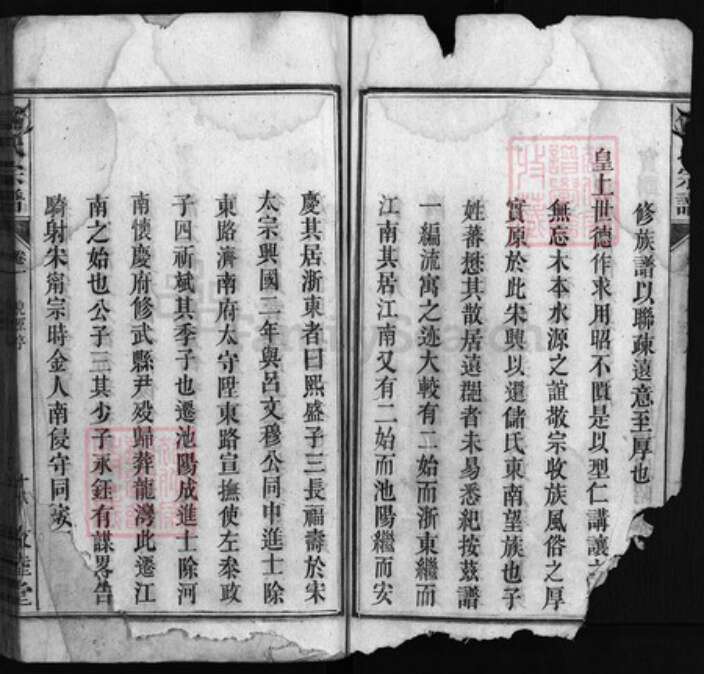 修族譜以聯疎遠意至厚也
皇上世德作求用昭不匱是以型仁講讓
無忘木本水源之誼敬宗收族風俗之厚
實原於此宋興以還儲氏東南望族也子
姓蕃懋其散居遠隔者未易悉紀按茲譜
一編流寓之迹大較有二始而浙東繼而
江南其居江南又有二始而池陽繼而安
慶其居浙東者曰熙盛子三長福壽於宋
太宗興國二年與呂文穆公同中進士除
東路濟南府太守陞東路宣撫使左叅政
子四祈斌其季子也遷池陽成進士除河
南懷慶府修武縣尹歿歸葬龍灣此遷江
南之始也公子三其少子承鈺有謀畧告
騎射宋甯宗時金人南侵守同安
氏宗譜
卷一
FamilySearch